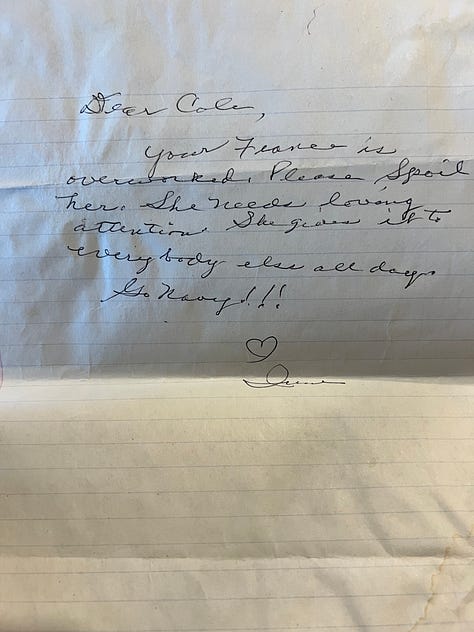 Dear Cole,
your Fiance is
overworked. Please Spoil
her. She needs loving
attention. She gives it to
everybody else all day.
Go Navy!!!